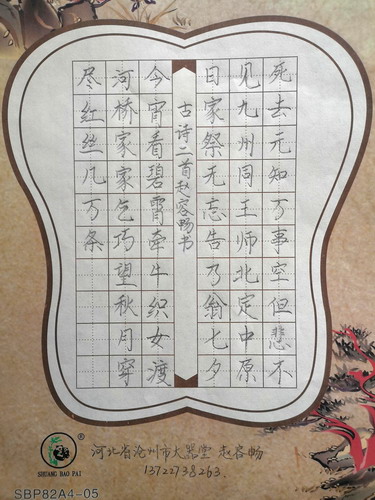 死去元知万事空但悲不
见九州同王师北定中原
日家祭无忘告乃翁七夕
古诗二首赵容畅书
今宵看碧霄牵牛织女渡
河桥家家乞巧望秋月穿
尽红丝几万条
河北省沧州市大器堂 赵容畅
13722738263
SHUANG BAO PAI
SBP82A4-05